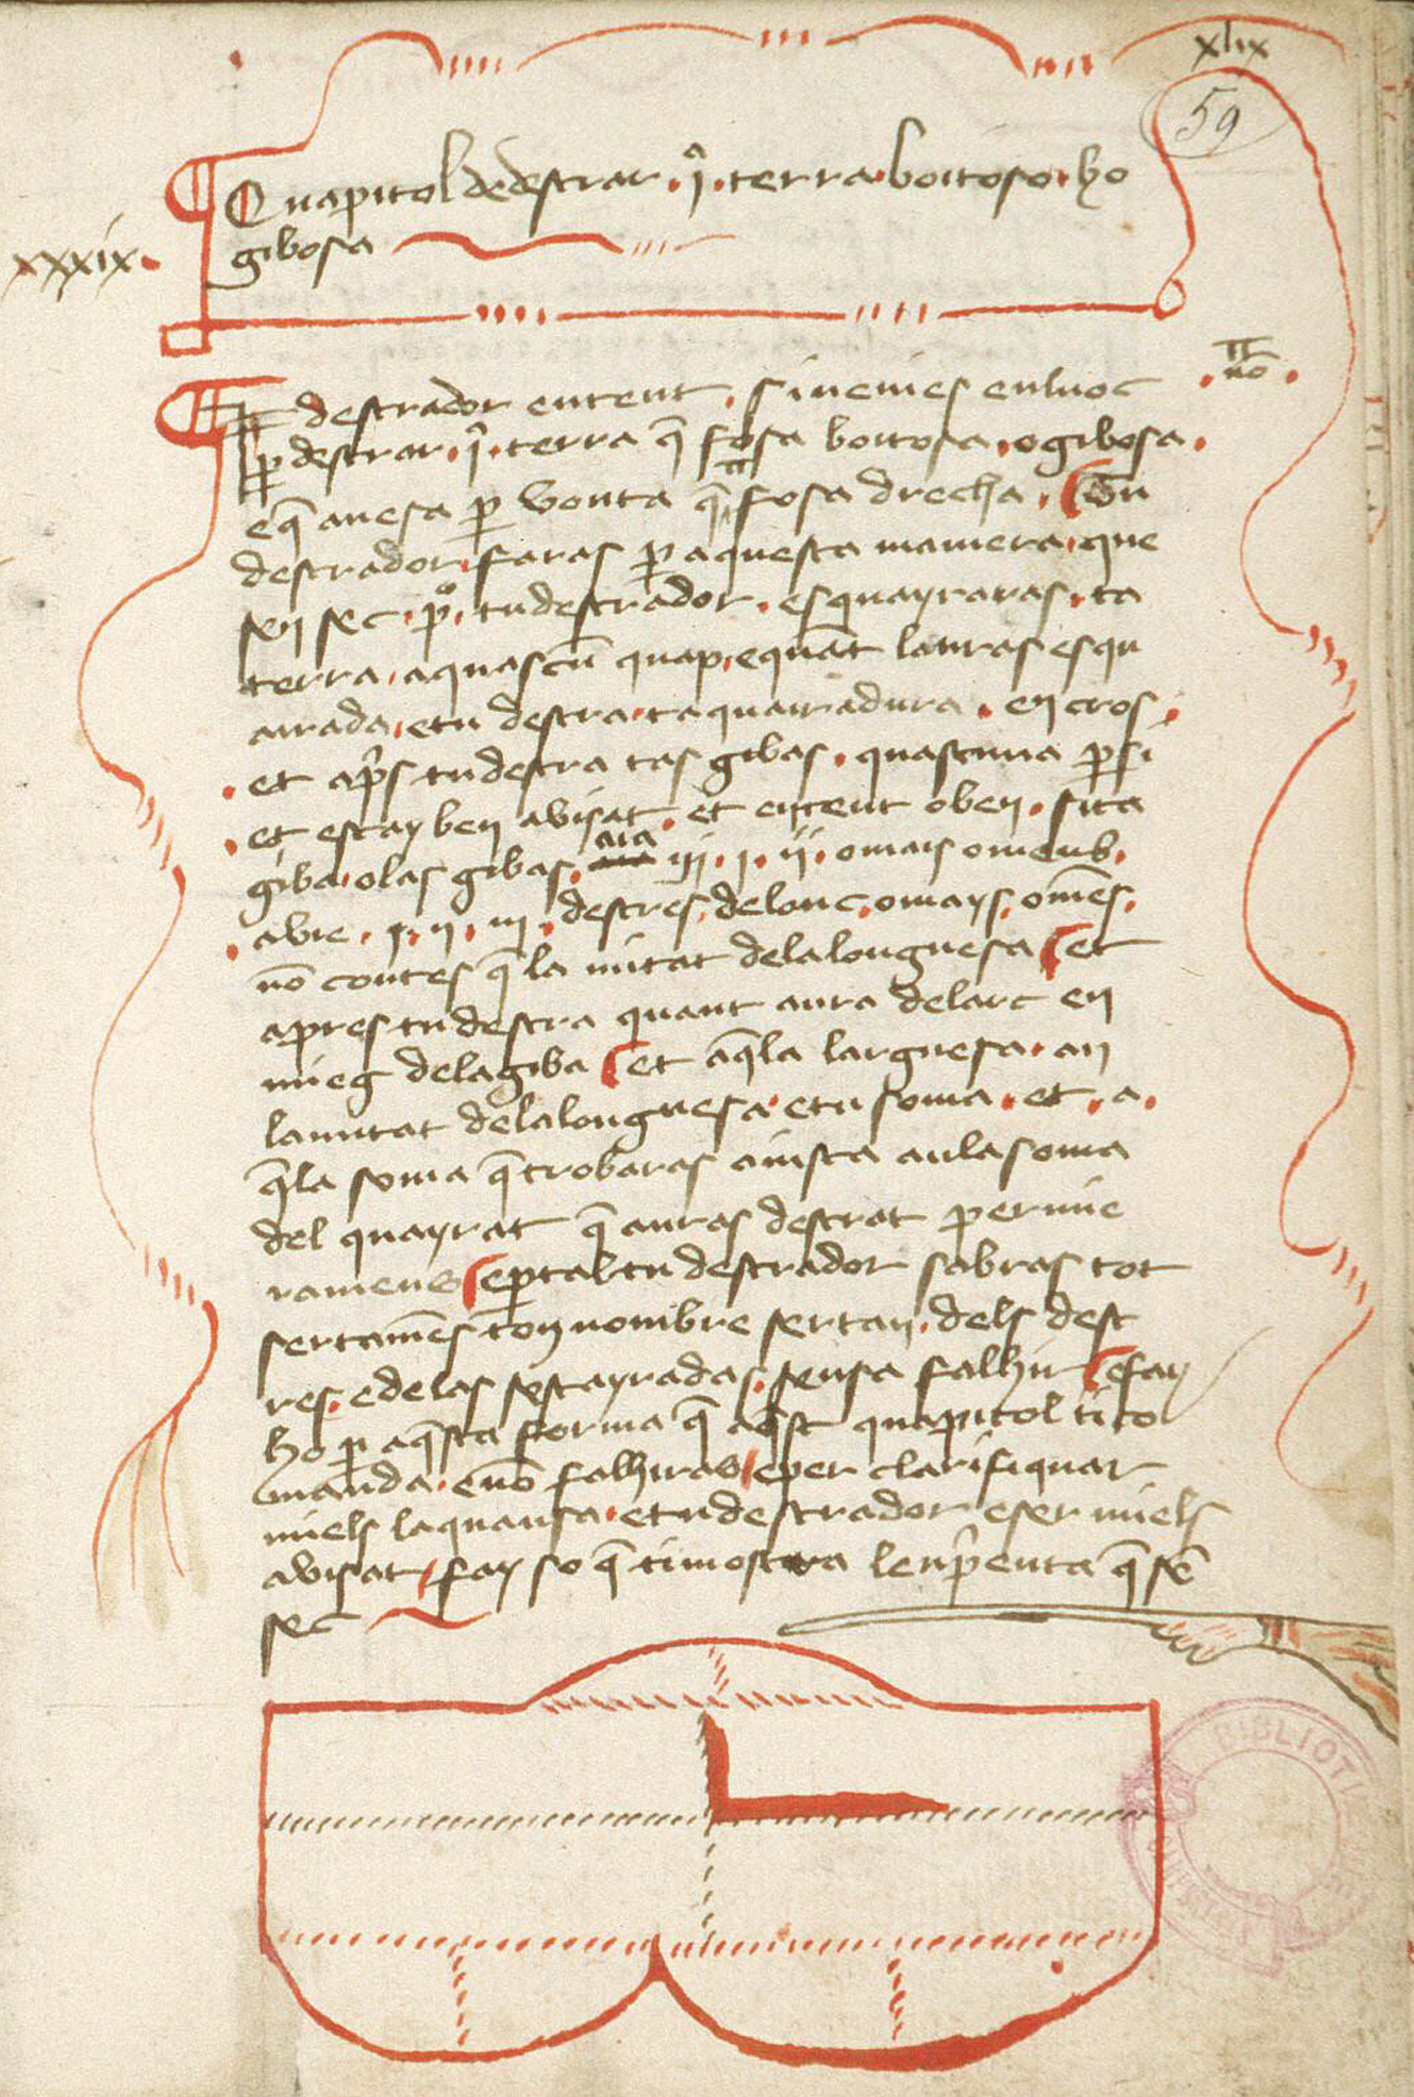 xlix
59
Quapitol de destrar · ĩ · terra · boitoso · ho
xxxix·
gibosa
destrador entent · si venies en luoc
· no ·
p destrar · ĩ · terra q̃ fosa boitosa · o gibosa ·
e q̃ avesa p vouta q̃ fosa drecha · Tu
destrador · faras p aquesta maniera · que
sen sec · pº · tu destrador · esquayraras · ta
terra · a quascũ quap · e quãt lauras esqu
airada · e tu destra · ta quairadura · en cros ·
· et aps tu destra tas gibas · quascuna p si
· et estay ben avisat · et entent o ben · si ta
giba · o las gibas · aia iij · j · ij · o mais o mens ·
· a vie · j · ij · iij · destres · de lonc · o mays · o mẽs ·
nõ contes q̃ la mitat de la longuesa et
apres tu destra quant aura de larc en
mieg de la giba et aq̃la larguesa · an
la mitat de la longuesa · e tu soma · et · a ·
q̃la soma q̃ trobaras aiusta an la soma
del quayrat q̃ auras destrat premie
ramens e p tal tu destrador sabras tot
sertamẽs ton nombre sertan · dels dest
res · e de las sestayradas · sensa falhir e fay
ho p aq̃sta forma q̃ aq̃st quapitol ti co
manda · e nõ falhiras e per clarifiquar
miels la quausa · e tu destrador e ser miels
avisat · fay so q̃ ti mostra l'enp̃enta q̃ sẽ
sec
BIBLIOT